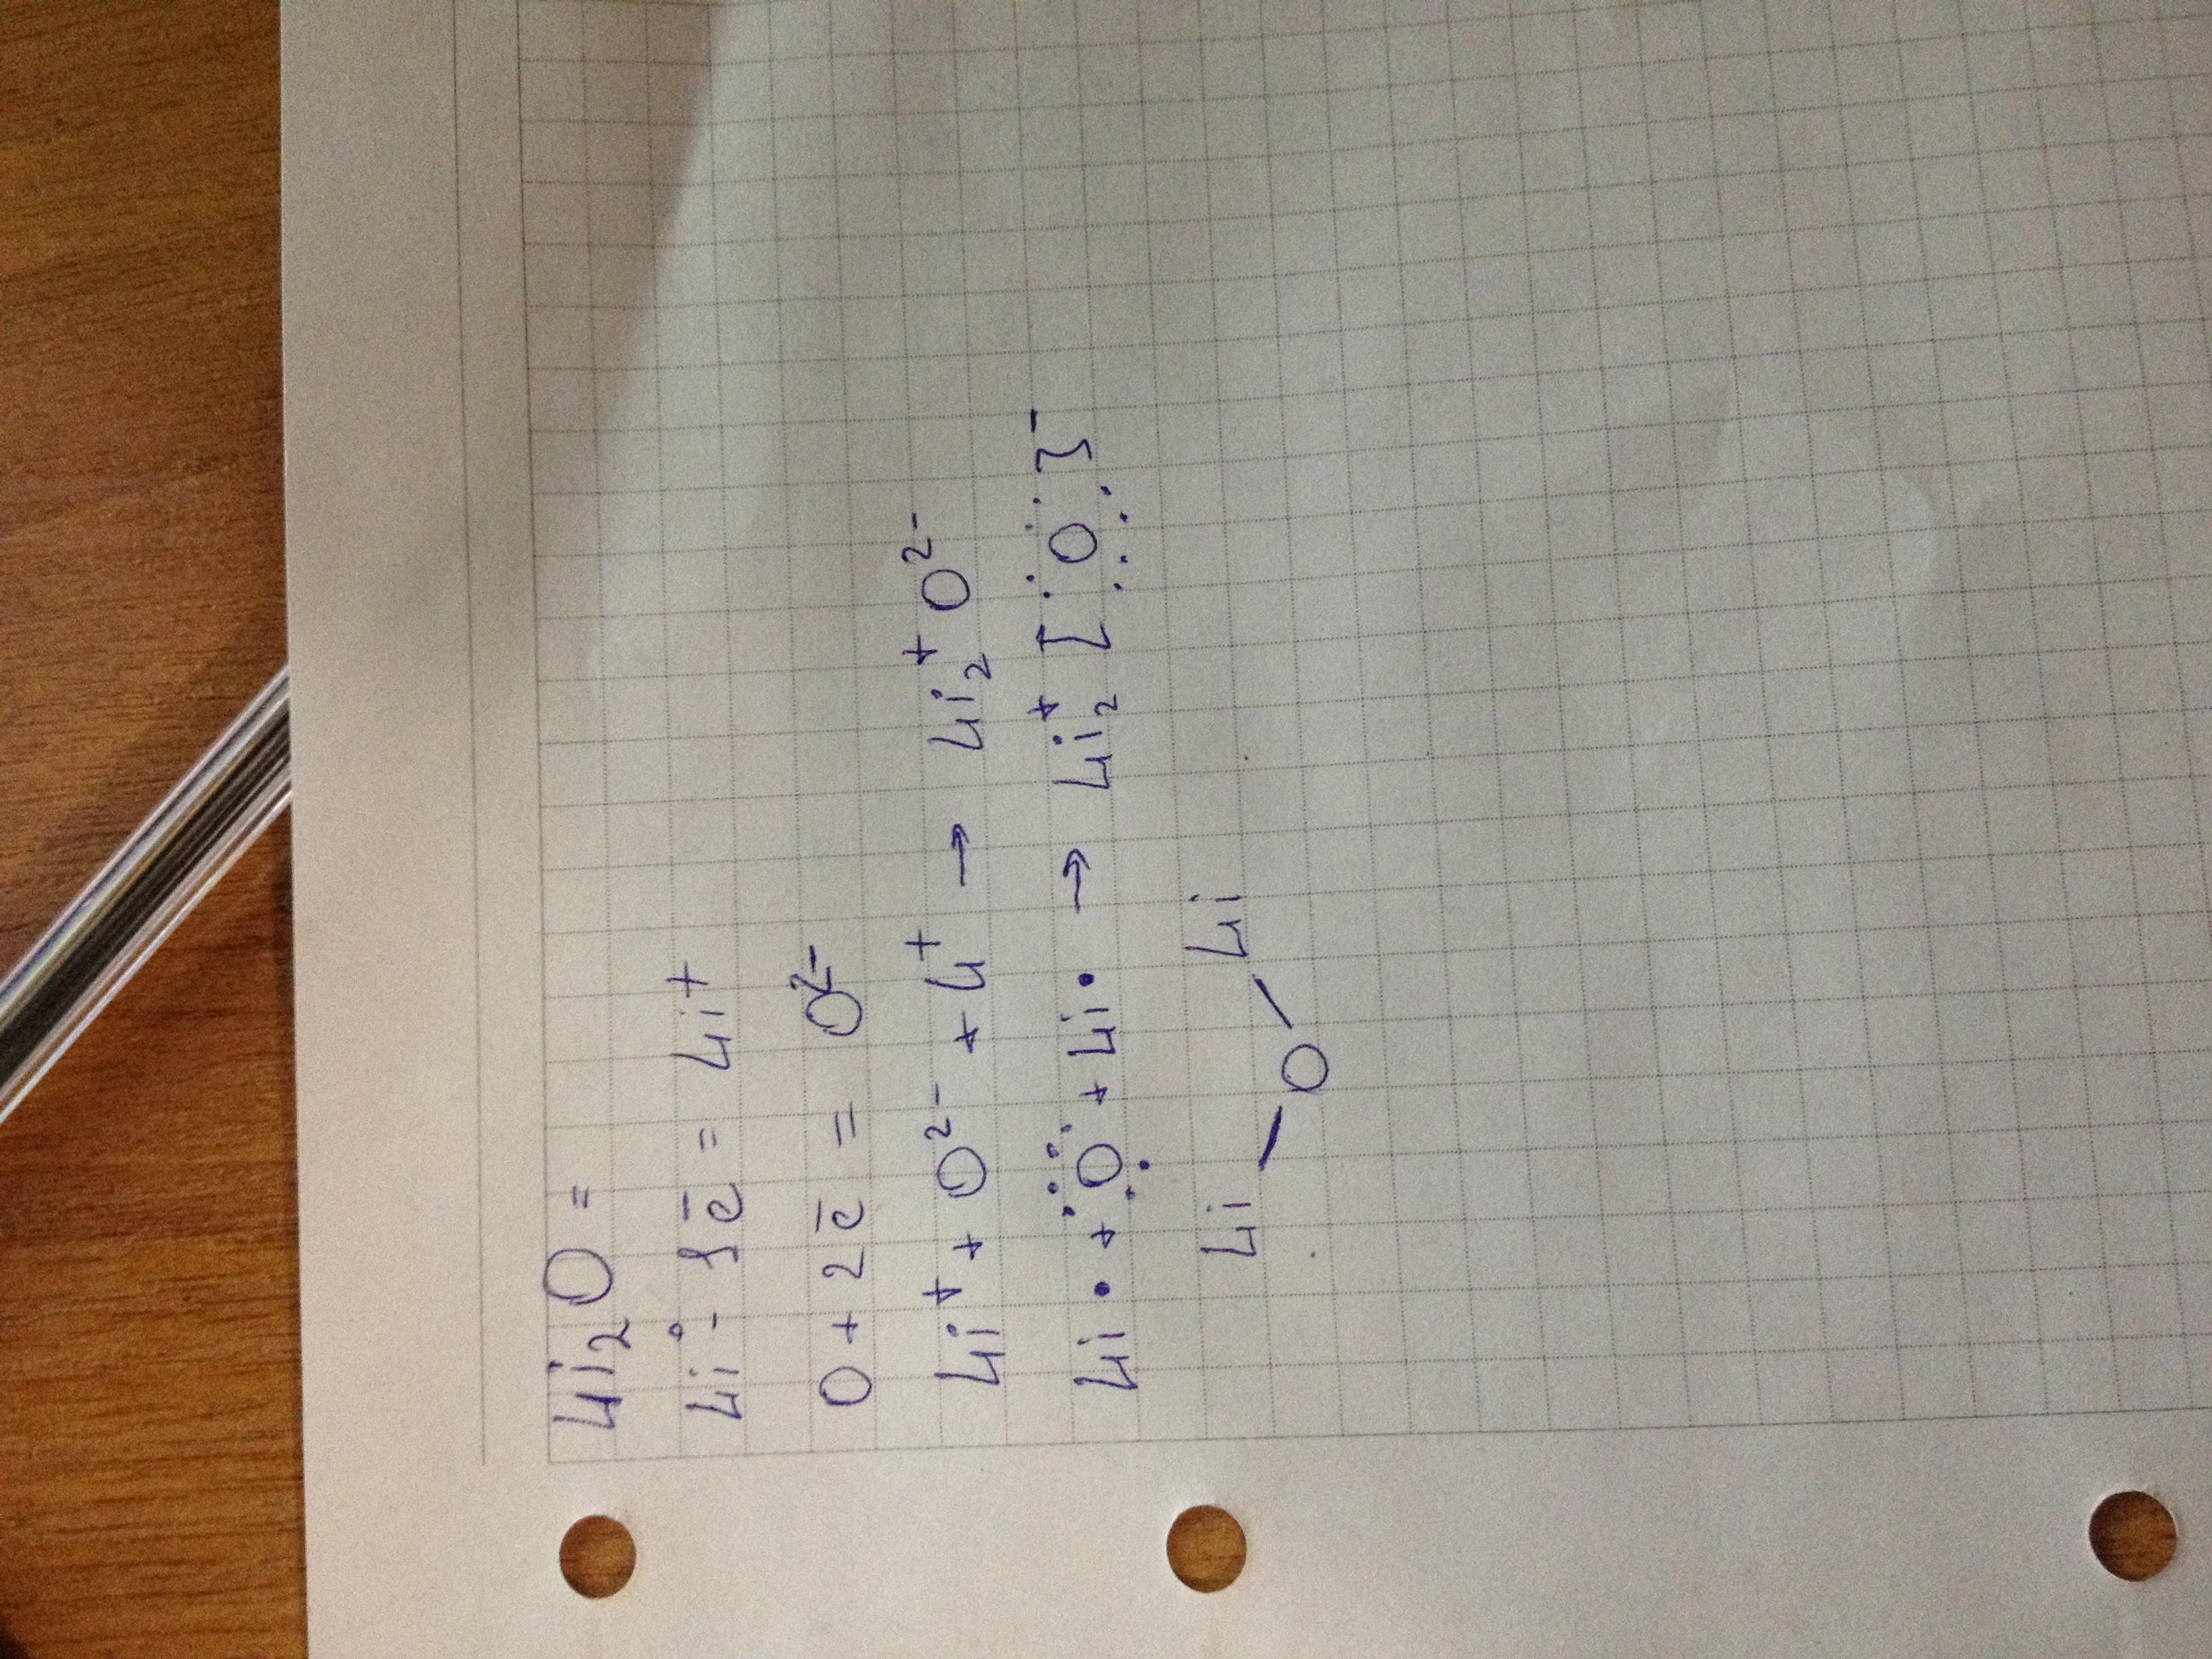 Li₂O =
Li⁰ - 1ē = Li⁺
O + 2ē = O²⁻
Li⁺ + O²⁻ + Li⁺ → Li₂⁺O²⁻
Li• + :Ö: + Li• → Li₂⁺[:Ö:]⁻
Li Li
O